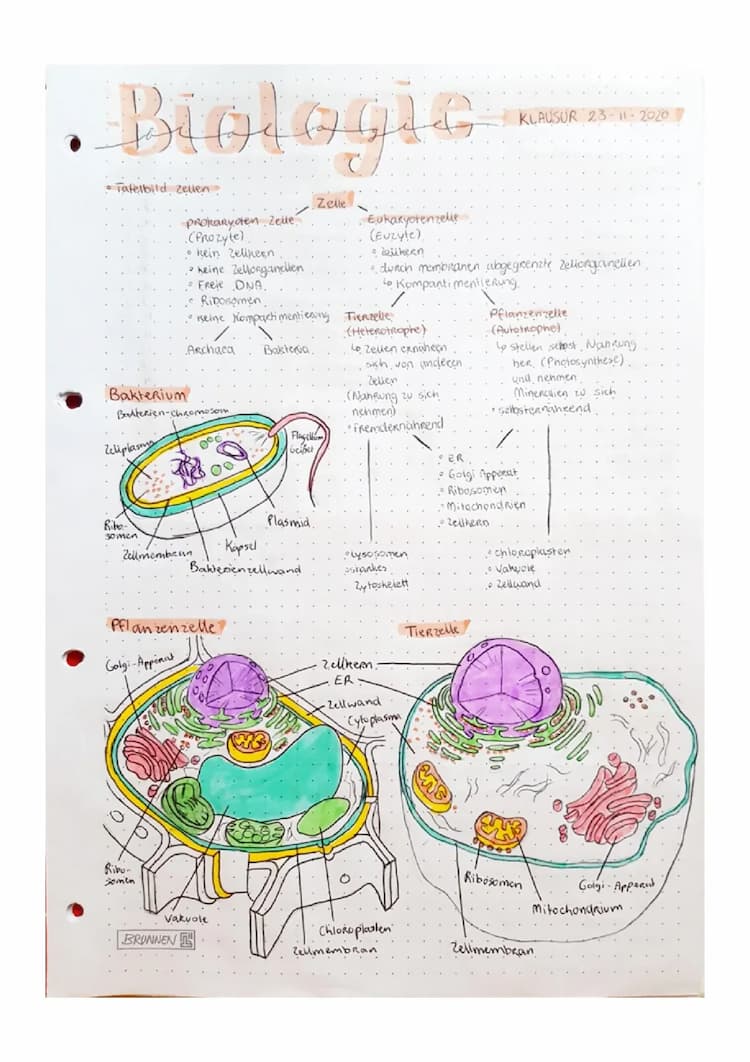 Biologie
KLAUSUR 23-11-2020
Tafelbild Zellen
Zelle
Prokaryoten Zelle
(Prozyte)
kein Zellkern
keine Zellorganellen
Freie DNA
Ribosomen
keine Kompartimentierung
Archaea Bakteria
Eukaryotenzelle
(Euzyte)
Zellkern
durch Membranen abgegrenzte Zellorganellen
↳ Kompartimentierung
Tierzelle
(Heterotrophe)
↳ Zellen ernähren
sich von anderen
Zellen
(Nahrung zu sich
nehmen)
Fremdernährend
Pflanzenzelle
(Autotrophe)
↳ stellen selbst Nahrung
her (Photosynthese)
und nehmen
Mineralien zu sich
selbsternährend
ER
Golgi Apparat
Ribosomen
Mitochondrien
Zellkern
Lysosomen
starkes
Zytoskelett
Chloroplasten
Vakuole
Zellwand
Bakterium
Bakterien-chromosom
Zellplasma
Flagellum
Ribo-
somen
Zellmembran
Bakterienzellwand
Kapsel
Plasmid
Pflanzenzelle
Golgi-Apparat
Zellkern
ER
Zellwand
Cytoplasma
Ribo-
somen
Vakuole
Chloroplasten
Zellmembran
BRUNNEN
Tierzelle
Ribosomen
Golgi-Apparat
Mitochondrium
Zellmembran